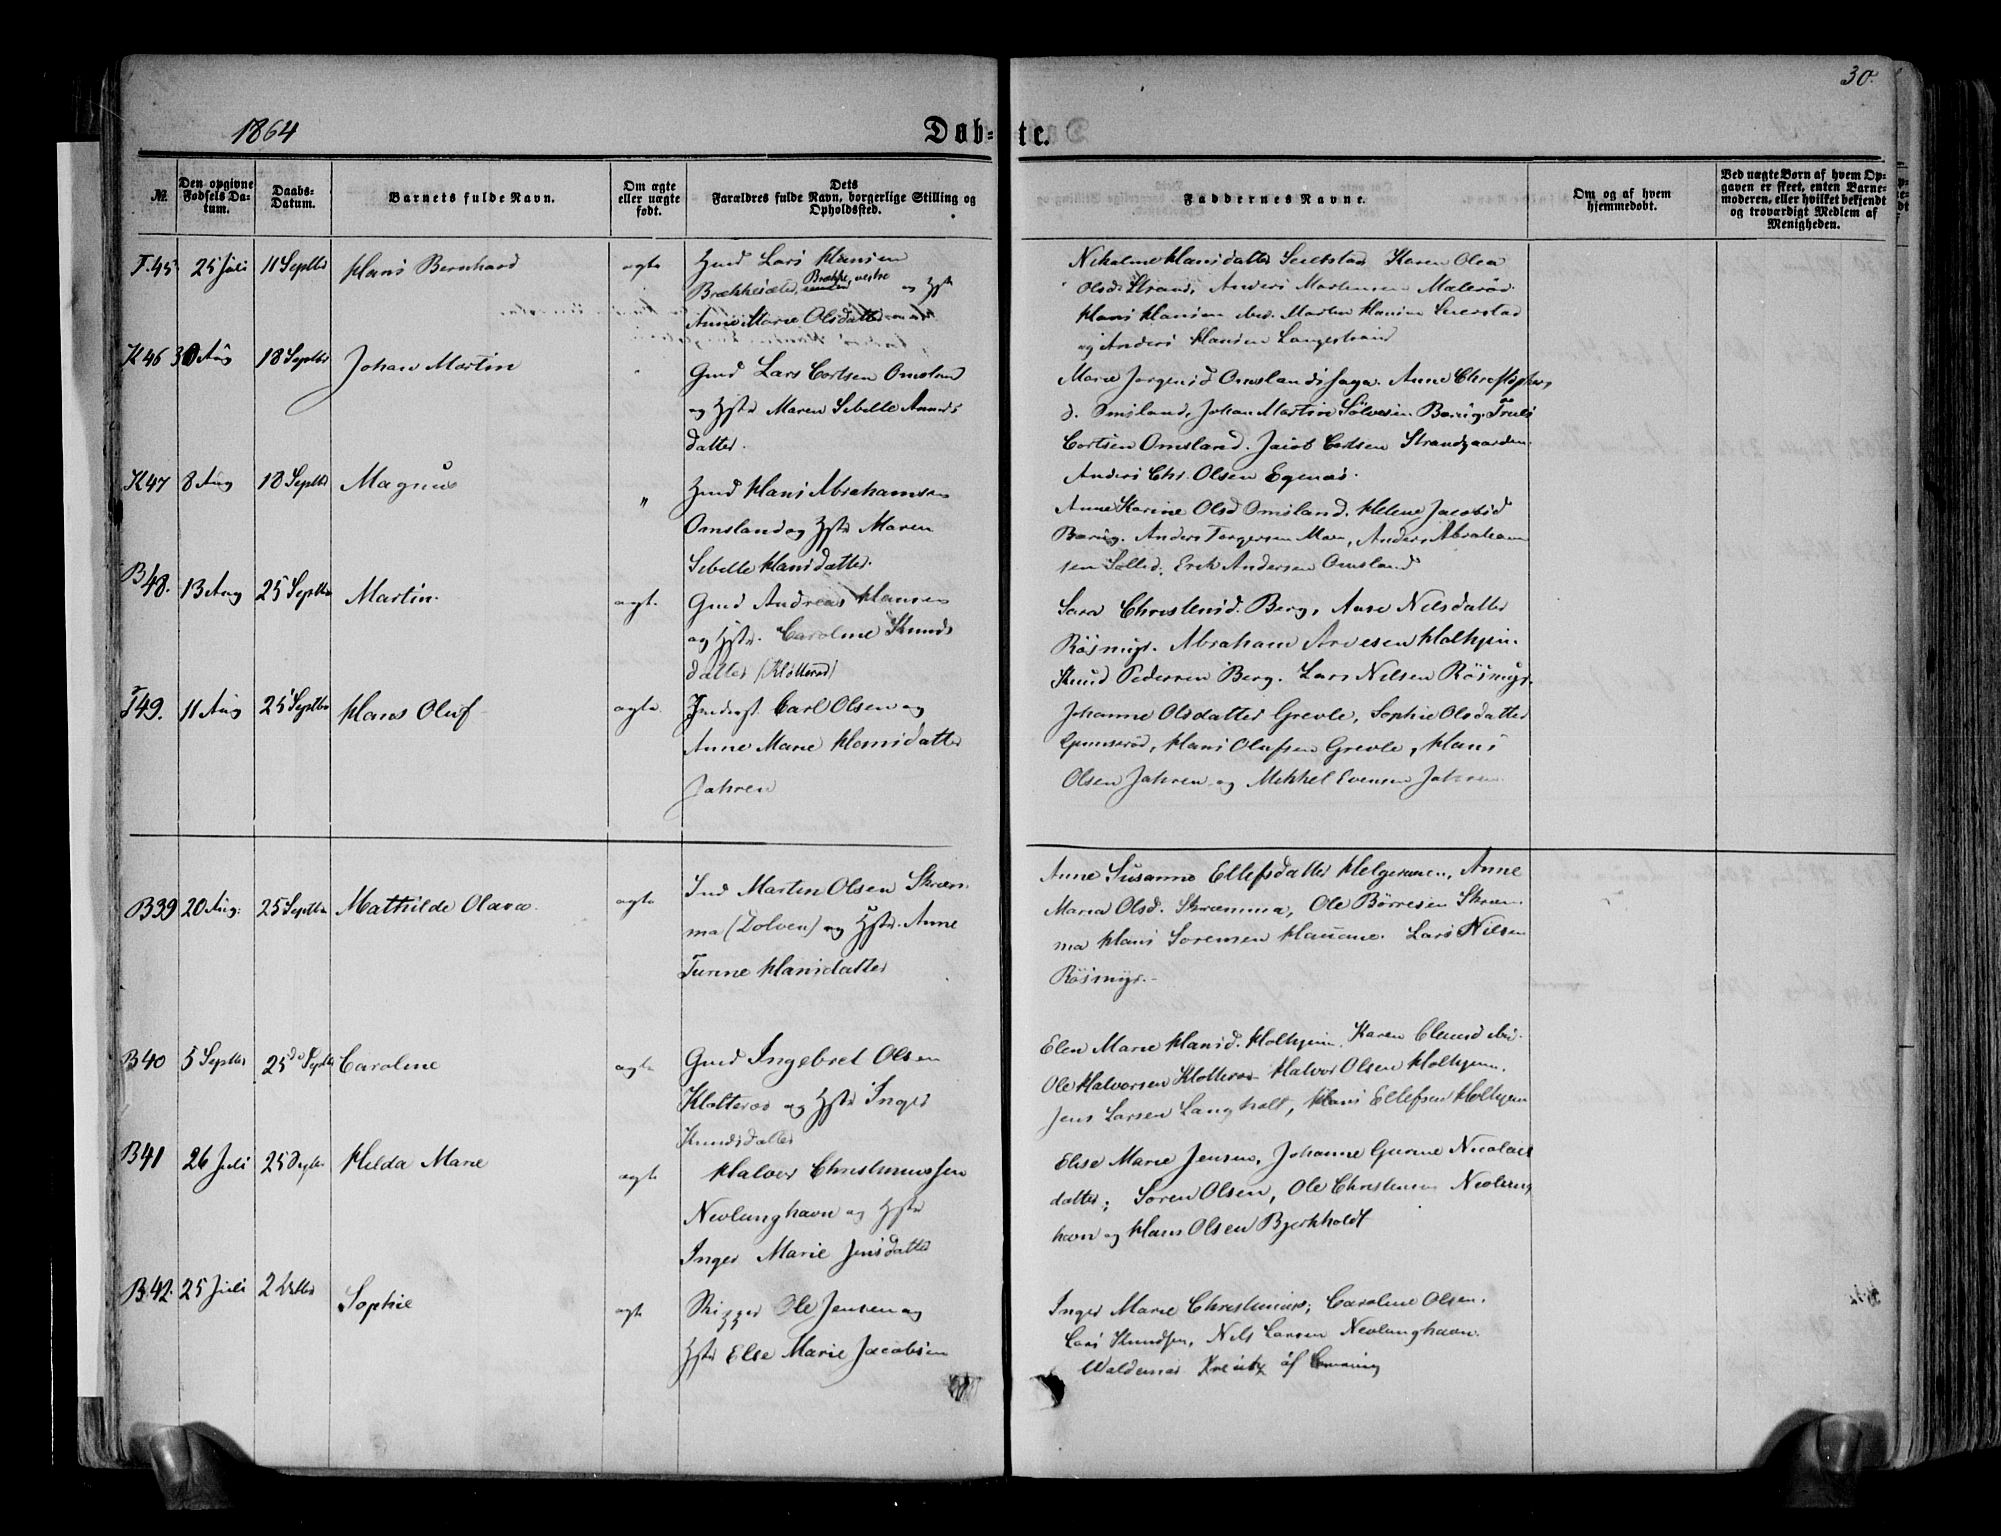 30.
1864
Døb-te.
№.
Den opgivne Fødsels Datum.
Daabs-Datum.
Barnets fulde Navn.
Om ægte eller uægte født.
Dets Forældres fulde Navn, borgerlige Stilling og Opholdssted.
Faddernes Navne.
Om og af hvem hjemmedøbt.
Ved uægte Børn af hvem Opgaven er skeet, enten Barnemoderen, eller hvilket bekjendt og troværdigt Medlem af Menigheden.
T.45 25 Juli 11 Septbr Hans Bernhard ægte
Gmd Lars Hansen
Brække, vestre
og Hstr
Anne Marie Olsdatter
Hansdatter Seierstad Karen Olea
Olsd. Strand, Anders Mortensen Malerød
Hans Hansen ibid. Morten Hansen Seierstad
og Anders Hansen Langestrand
K46 30 Aug 18 Septbr Johan Martin
Gmd Lars Cortsen Omsland
og Hstr Maren Sibelle Anders
datter.
Maren Jørgensd Omslandssaga. Anne Christophers
d. Omsland, Johan Martin Sølvesen Barug. Truls
Cortsen Omsland. Jacob Cortsen Strandgaarden
Anders Chr. Olsen Egenæs.
K47 8 Aug 18 Septbr Magnus "
Hmd Hans Abrahamsen
Omsland og Hstr Maren
Sibelle Hansdatter.
Anne Karine Olsd Omsland. Helene Jacobsd
Barug. Anders Torgersen Moen, Anders Abraham
sen Sollid, Erik Andersen Omsland
B48. 13 Aug 25 Septbr Martin. ægte.
Gmd Andreas Hansen
og Hstr. Caroline Knuds
datter (Klotterød)
Sara Christensd. Berg, Anne Nilsdatter
Røsmyr. Abraham Arvesen Holhjem.
Knud Pedersen Berg. Lars Nilsen Røsmyr.
T49. 11 Aug 25 Septbr Hans Oluf ægte.
Inderst. Carl Olsen og
Anne Marie Hansdatter
Jahren
Johanne Olsdatter Grevle, Sophie Olsdatter
Gunnerød, Hans Olufsen Grevle, Hans
Olsen Jahren og Mikkel Evensen Jahren
B39 20 Aug. 25 Septbr Mathilde Olava. ægte
Ind Martin Olsen Skræm
ma (Dolven) og Hstr. Anne
Turine Hansdatter
Anne Susanne Ellefsdatter Helgeraaen, Anne
Maria Olsd. Skræmma, Ole Børresen Skræm
ma Hans Sørensen Hauane. Lars Nilsen
Røsmyr.
B40 5 Septbr 25de Septbr Caroline ægte
Gmd Ingebret Olsen
Klotterød og Hstr Inger
Knudsdatter
Elen Marie Hansd. Holhjem, Karen ibid.
Ole Halvorsen Klotterød Halvor Olsen Holhjem.
Jens Larsen Langholt, Hans Ellefsen Holhjem
B41 26 Juli 25 Septbr Hilda Marie ægte
Halvor Christensen
Nevlunghavn og Hstr
Inger Marie Jensdatter
Elise Marie Jensen, Johanne Gurine Nicolais
datter; Søren Olsen, Ole Christensen Nevlung
havn og Hans Olsen Bjerkholdt
B42. 25 Juli 2 Octbr Sophie ægte
Skipper Ole Jensen og
Hstr Else Marie Jacobsen
Inger Marie Christensen; Caroline Olsen.
Lars Knudsen, Nils Larsen Nevlunghavn.
Waldemar af